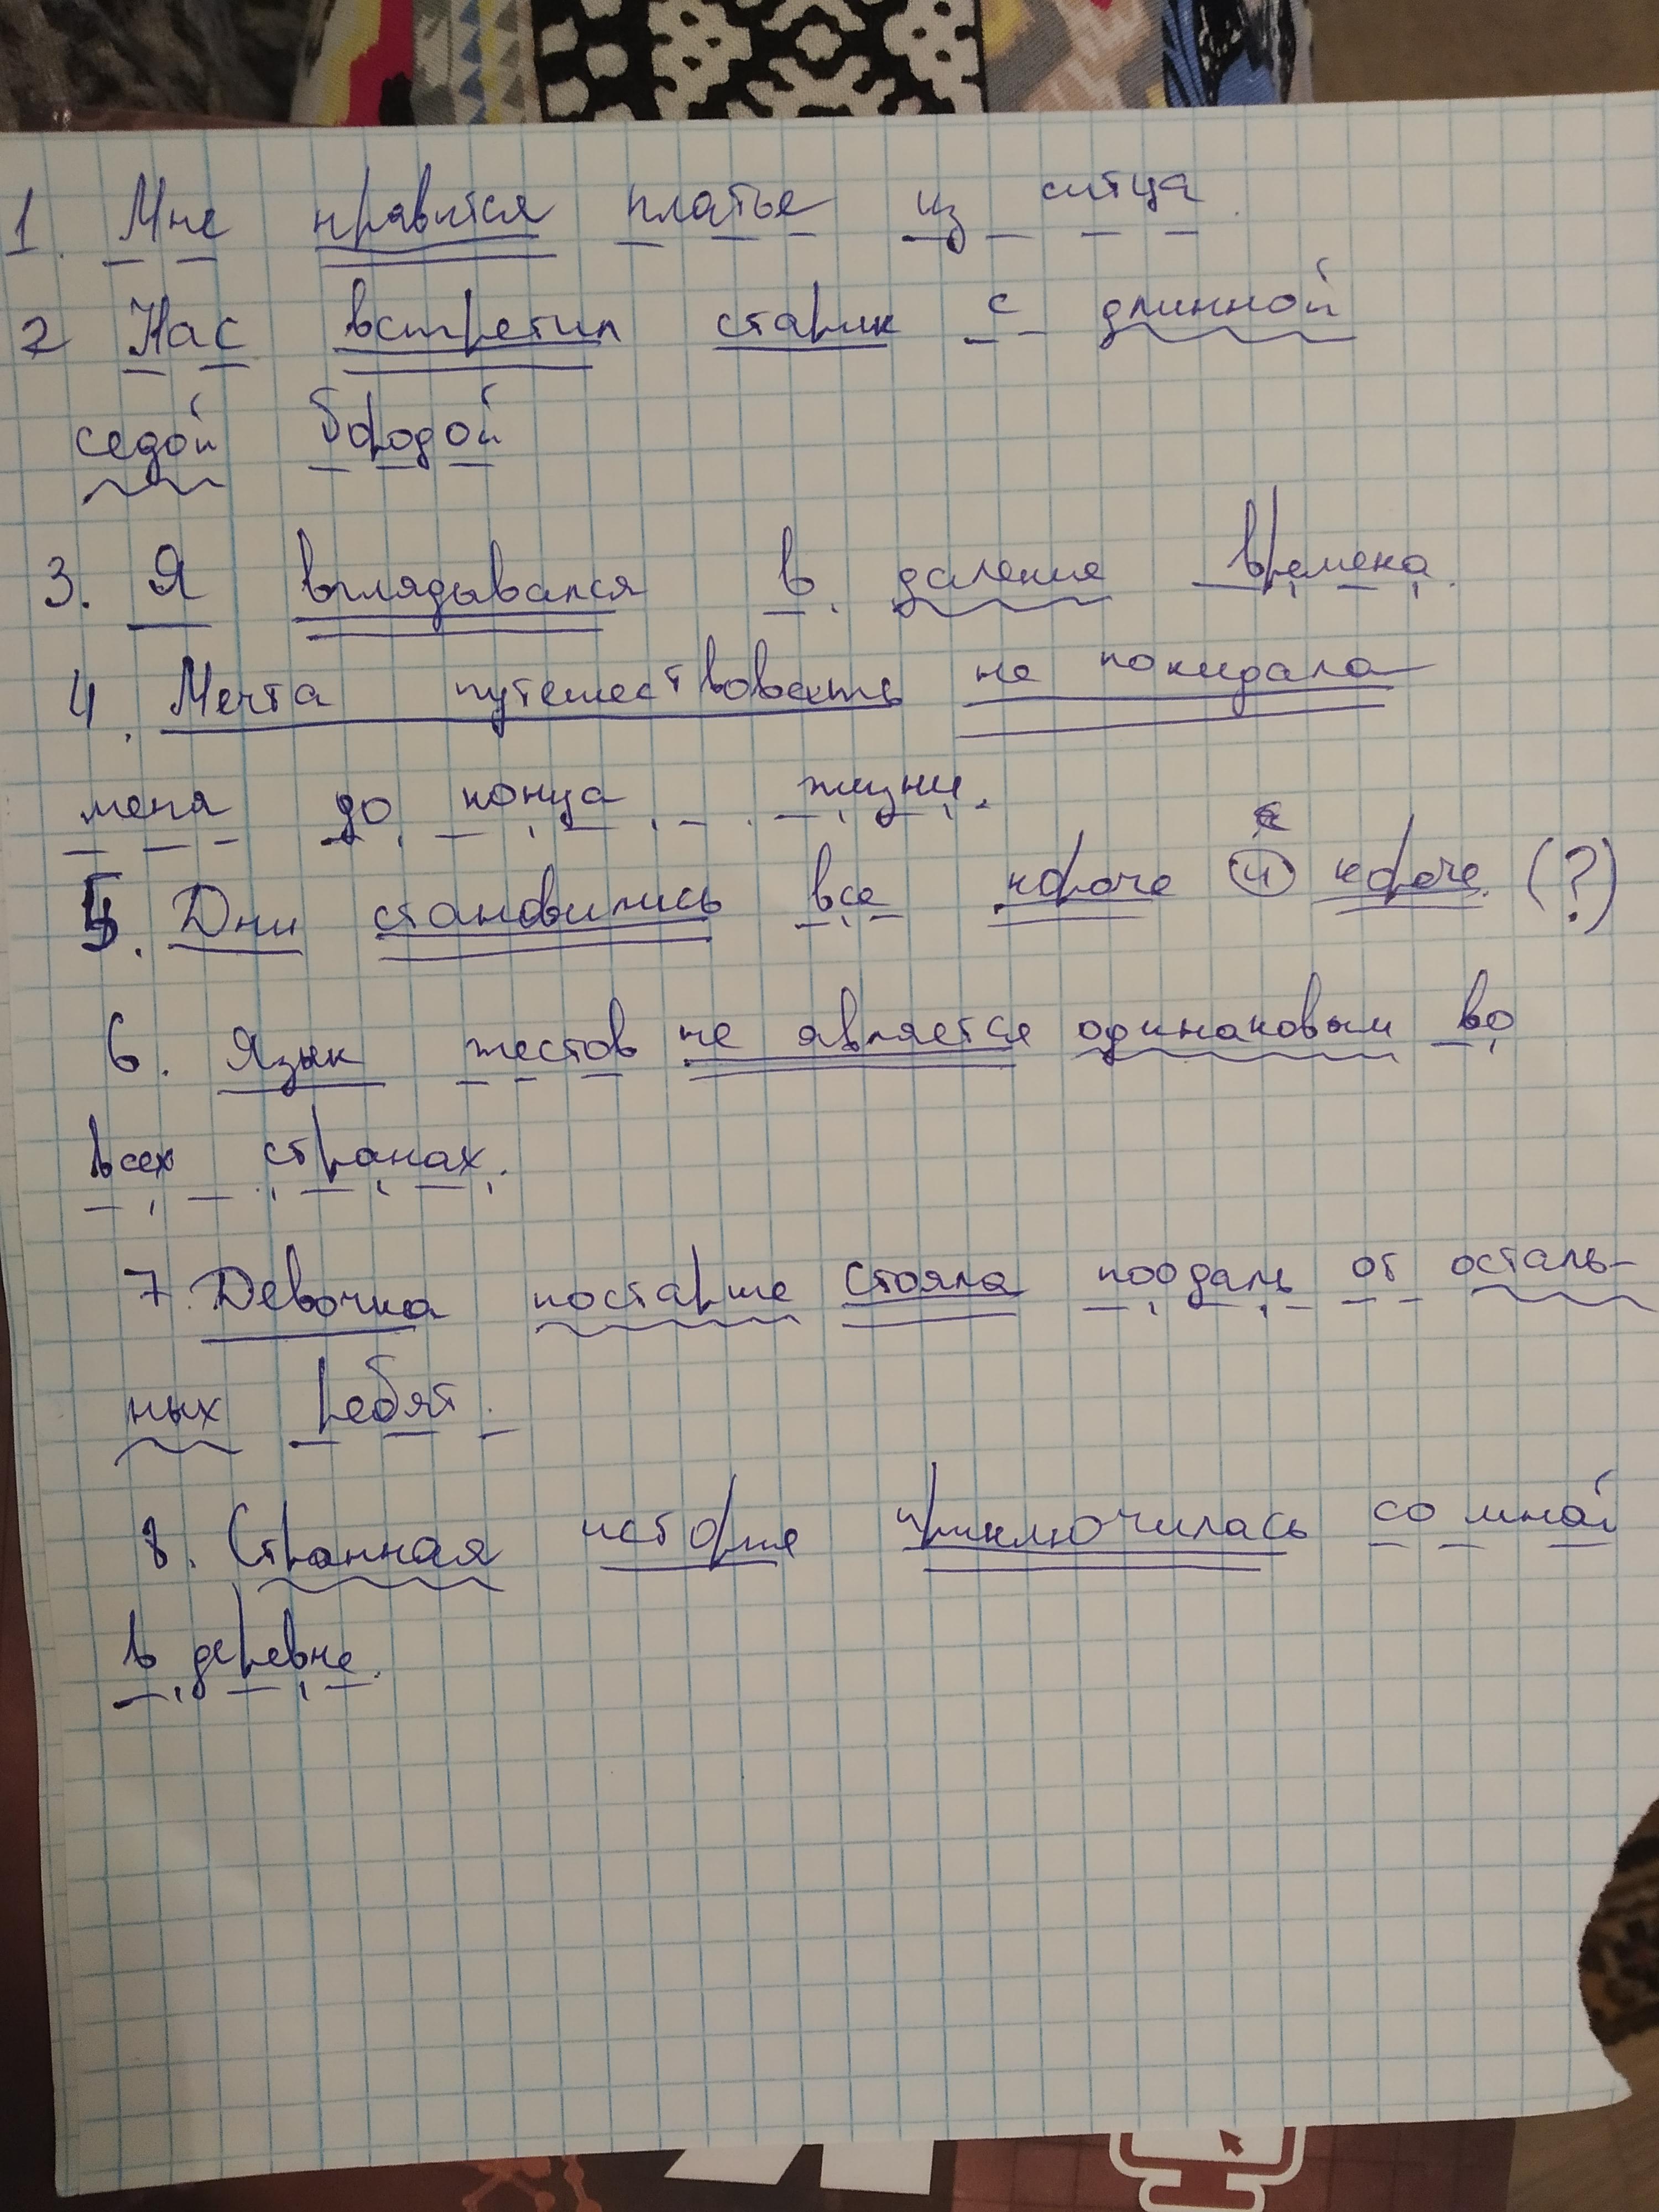 1. Мне нравится платье из ситца.
2 Нас встретил старик с длинной
седой бородой
3. Я вглядывался в далекие времена.
4. Мечта путешествовать не покидала
меня до конца жизни.
5. Дни становились все короче и короче. (?)
6. Язык жестов не является одинаковым во
всех странах.
7. Девочка постарше стояла поодаль от осталь-
ных ребят.
8. Странная история приключилась со мной
в деревне.